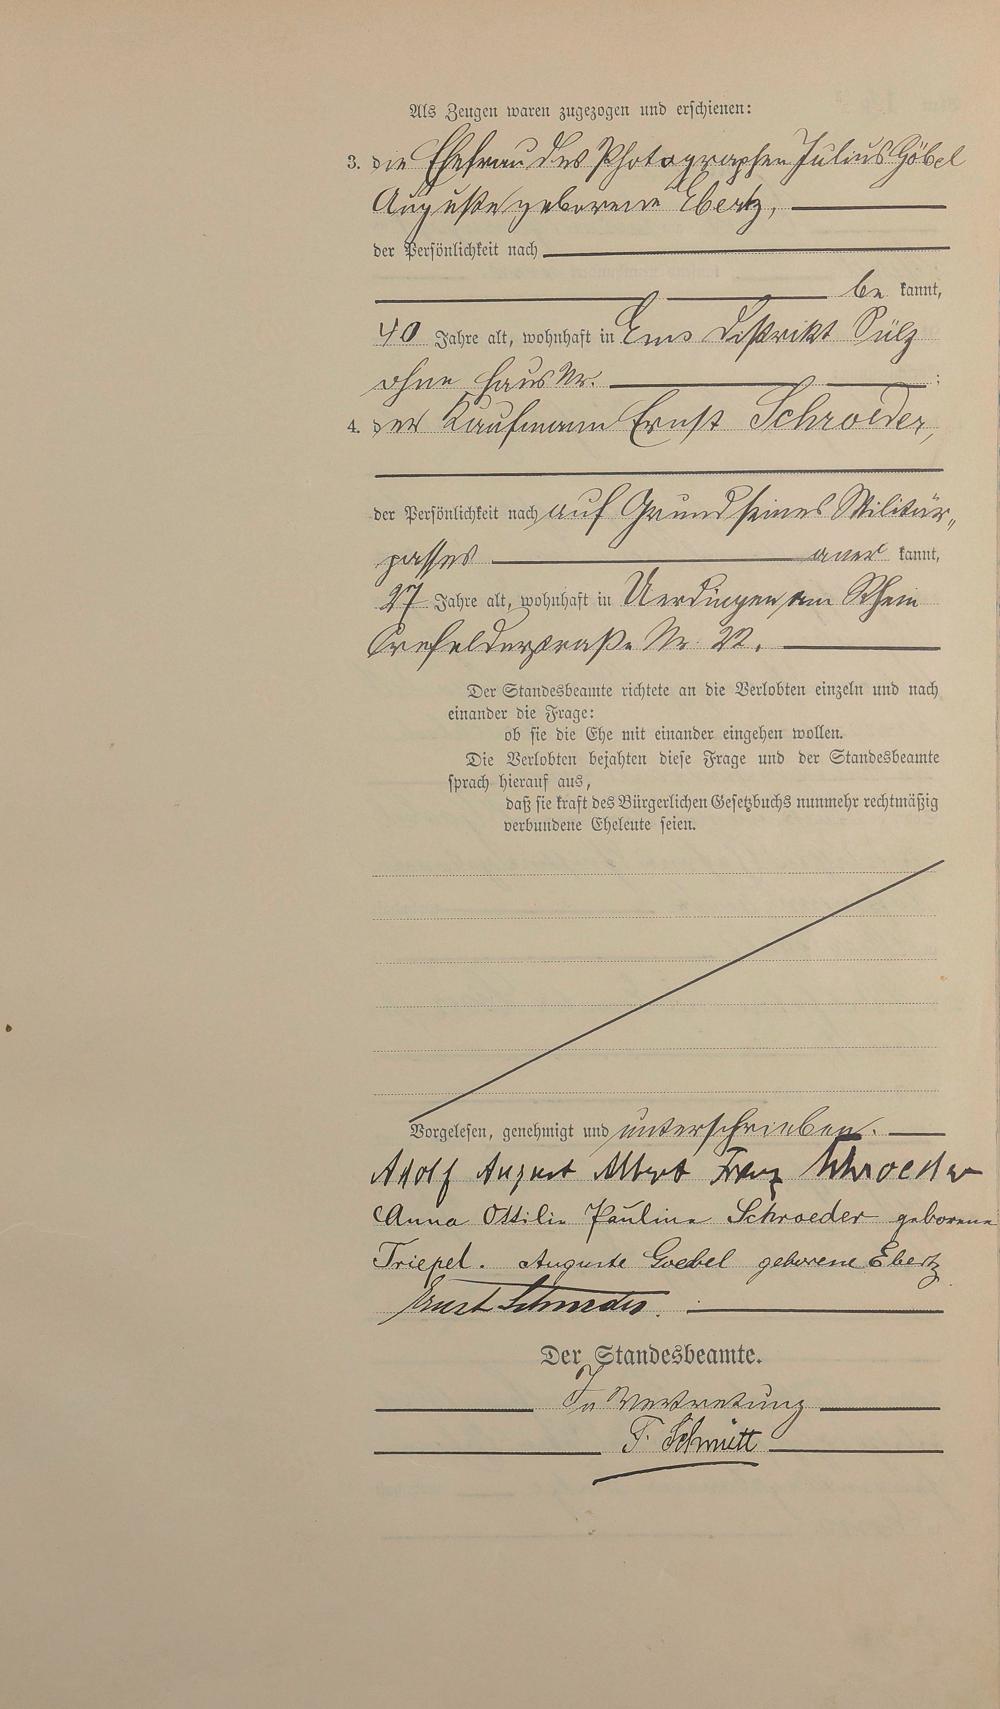 Als Zeugen waren zugezogen und erschienen:
3. die Ehefrau des Photographen Julius Göbel
Auguste geborene Ebertz,
der Persönlichkeit nach
be kannt,
40 Jahre alt, wohnhaft in Ems Distrikt Pülz
ohne Haus Nr. ;
4. der Kaufmann Ernst Schroeder,
der Persönlichkeit nach auf Grund seines Militär„
passes aner kannt,
27 Jahre alt, wohnhaft in Uerdingen am Rhein
Crefelderstraße Nr 22.
Der Standesbeamte richtete an die Verlobten einzeln und nach
einander die Frage:
ob sie die Ehe mit einander eingehen wollen.
Die Verlobten bejahten diese Frage und der Standesbeamte
sprach hierauf aus,
daß sie kraft des Bürgerlichen Gesetzbuchs nunmehr rechtmäßig
verbundene Eheleute seien.
Vorgelesen, genehmigt und unterschrieben.
Adolf August Albert Franz Schroeder
Anna Ottilie Pauline Schroeder geborene
Triepel. Auguste Goebel geborene Ebertz
Ernst Schroeder.
Der Standesbeamte.
In Vertretung
F. Schmitt